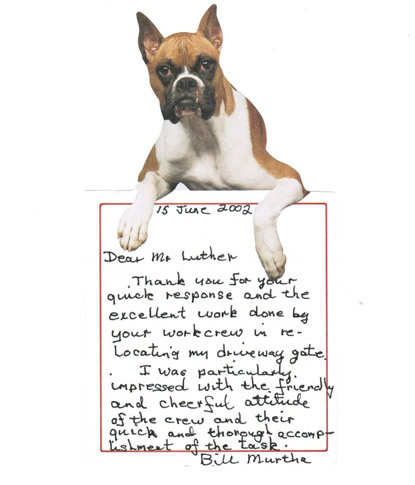 15 June 2002
Dear Mr Luther
Thank you for your
quick response and the
excellent work done by
your workcrew in re-
locating my driveway gate.
I was particularly
impressed with the friendly
and cheerful attitude
of the crew and their
quick and thorough accomp-
lishment of the task.
Bill Murtha